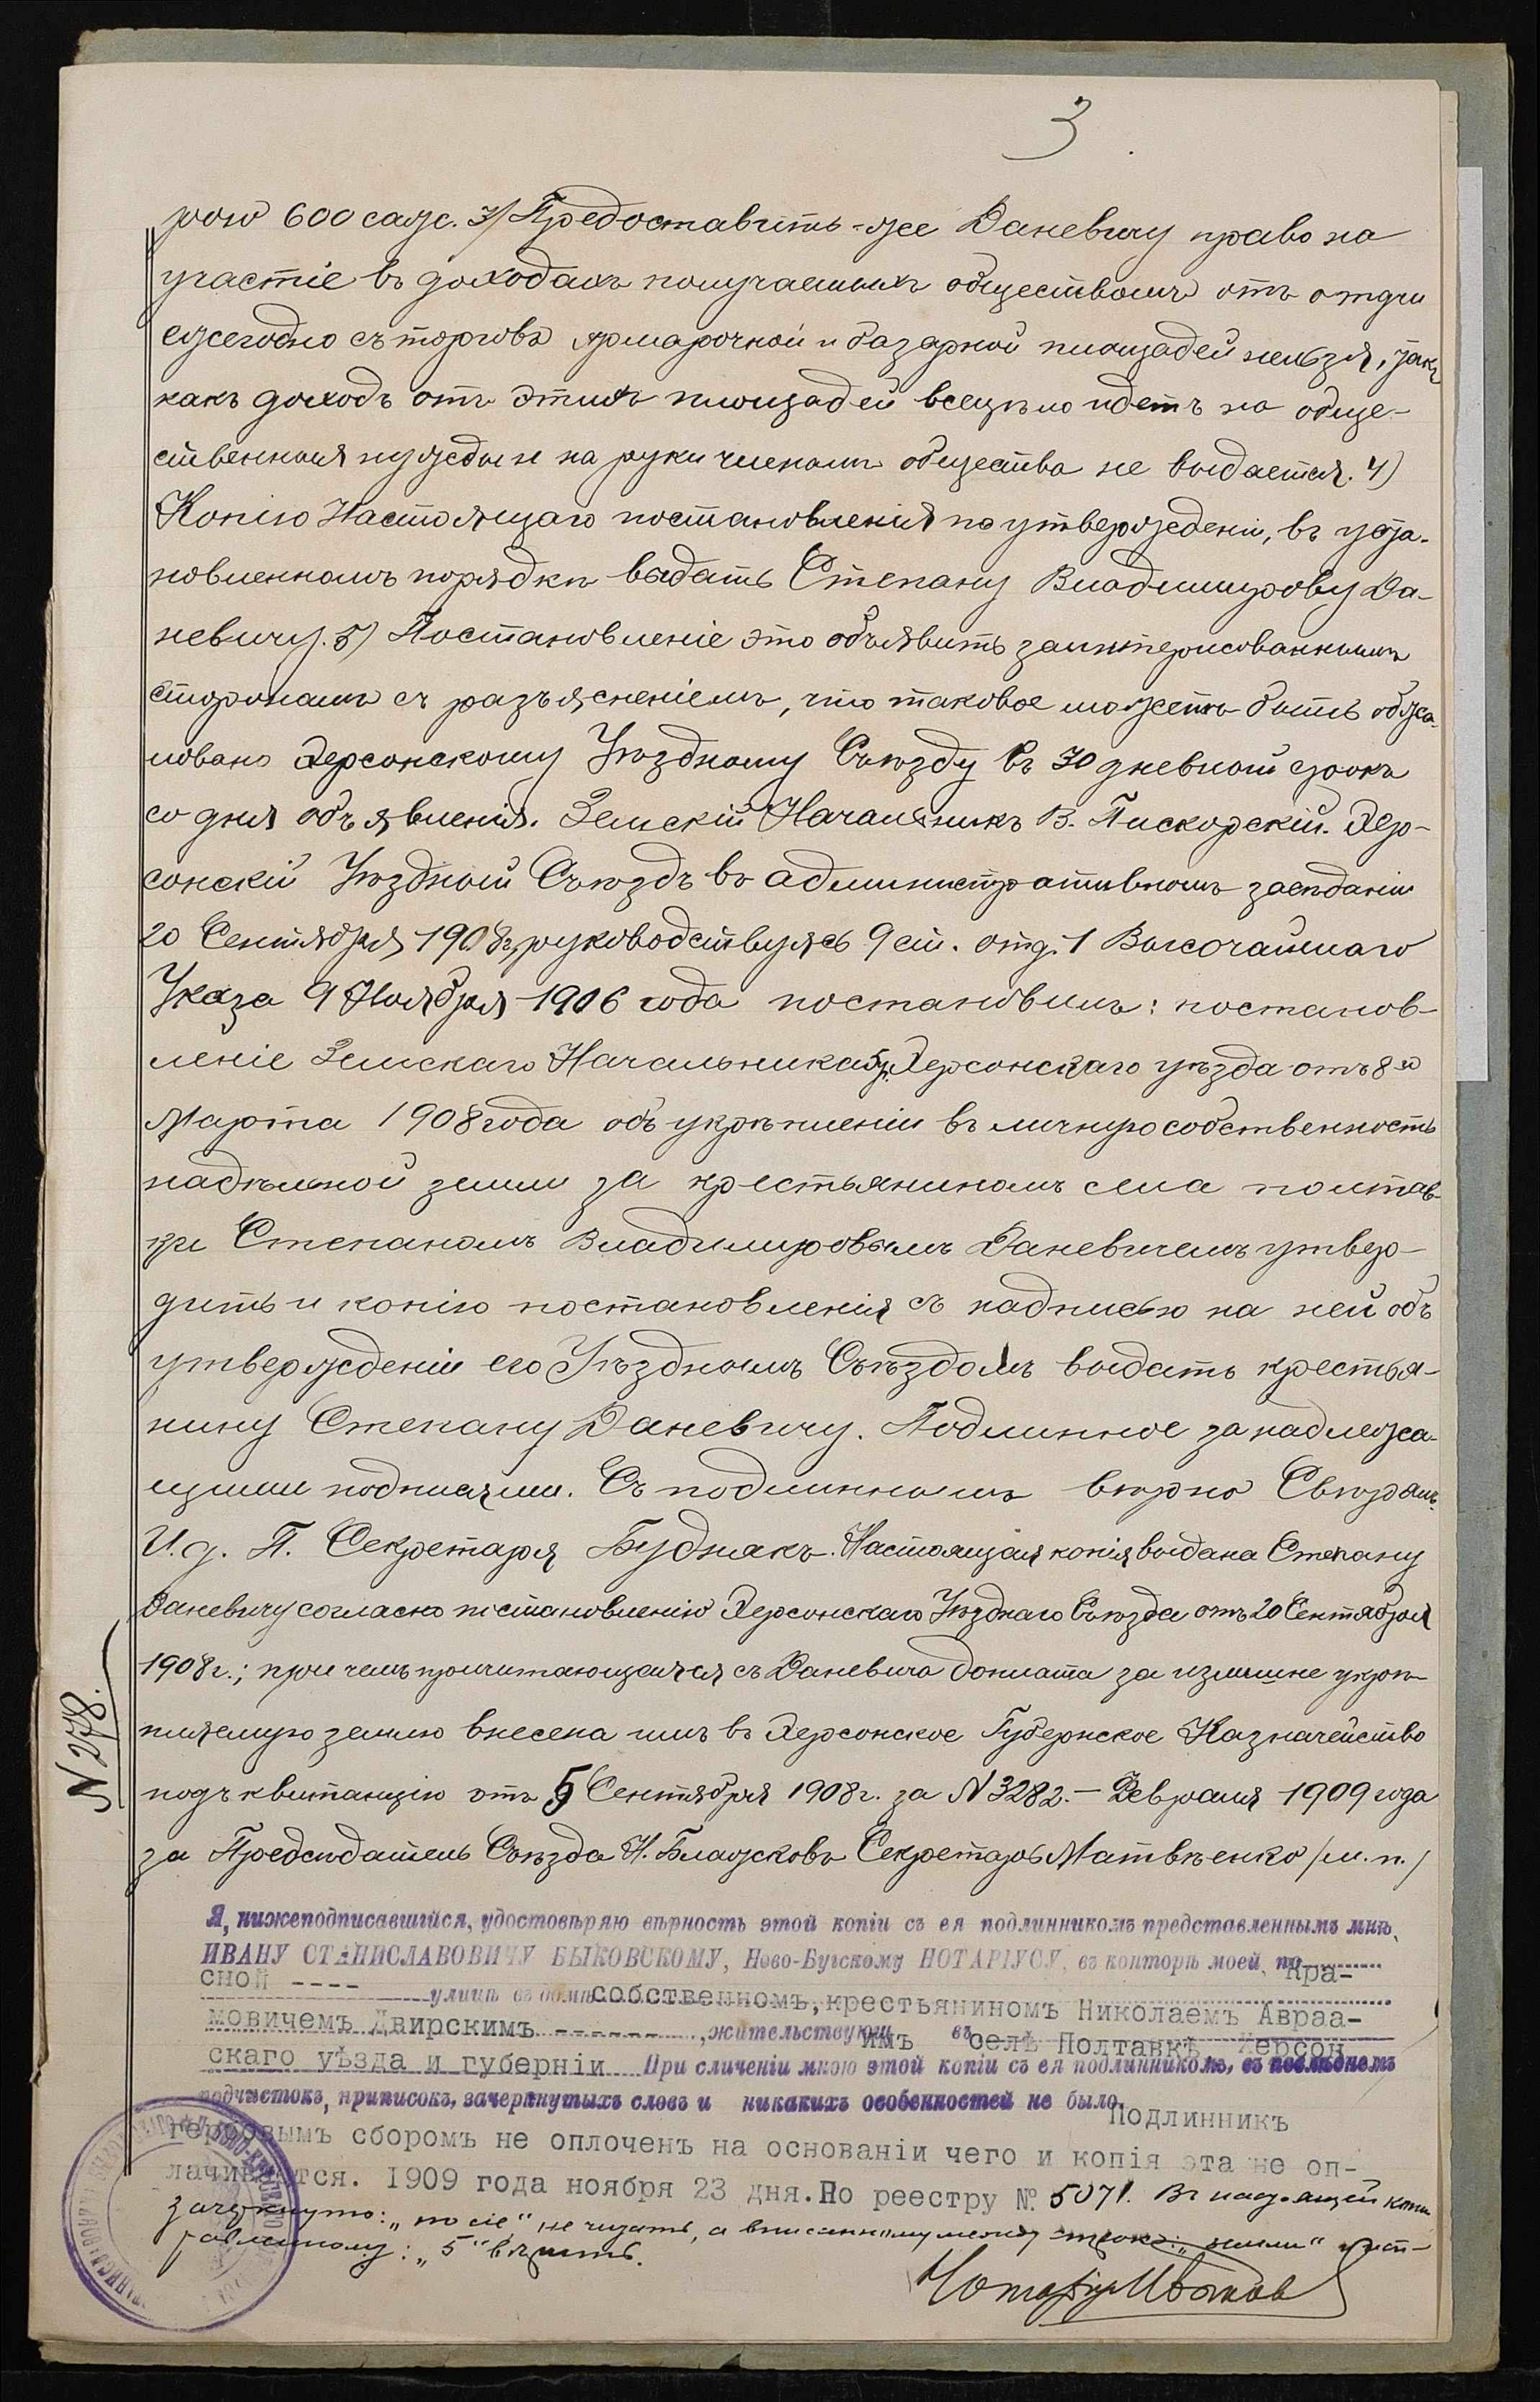 3
рою 600 саж. 3) Предоставить-же Даневичу право на
участіе въ доходахъ получаемыхъ обществомъ отъ отдачи
ежегодно съ торговъ ярмарочной и базарной площадей нельзя, такъ
какъ доходъ отъ этихъ площадей всецѣло идетъ на обще-
ственныя нужды и на руки членамъ общества не выдается. 4)
Копію Настоящаго постановленія по утвержденіи, въ уста-
новленномъ порядкѣ выдать Степану Владимирову Да-
невичу. 5) Постановленіе это объявить заинтерисованнымъ
сторонамъ съ разъясненіемъ, что таковое можетъ быть обжа-
ловано Херсонскому Уѣздному Съѣзду въ 30 дневный срокъ
со дня объявленія. Земскій Начальникъ В. Пискорскій. Хер-
сонскій Уѣздный Съѣздъ въ административномъ засѣданіи
20 Сентября 1908 г, руководствуясь 9 ст. отд. 1 Высочайшаго
Указа 9 Ноября 1906 года постановилъ: постанов-
леніе Земскаго Начальника 5 у. Херсонскаго уѣзда отъ 8го
Марта 1908 года объ укрѣпленіи въ личную собственность
надѣльной земли за крестьяниномъ села Полтав-
ки Степаномъ Владимировымъ Даневичемъ утвер-
дить и копію постановленія съ надписью на ней объ
утвержденіи его Уѣзднымъ Съѣздомъ выдать крестья-
нину Степану Даневичу. Подлинное за надлежа-
щими подписями. Съ подлиннымъ вѣрно Свѣрялъ
И. д. П. Секретаря Буднякъ. Настоящая копія выдана Степану
Даневичу согласно постановленію Херсонскаго Уѣзднаго Съѣзда отъ 20 Сентября
1908 г.; при чемъ причитающаяся съ Даневича доплата за излишне укрѣ-
пляемую землю внесена имъ въ Херсонское Губернское Казначейство
подъ квитанцію отъ 5 Сентября 1908 г. за N 3282. — Февраля 1909 года
за Предсѣдатель Съѣзда Н. Блажковъ Секретарь Матвѣенко /м. п./
N 278.
Я, нижеподписавшійся, удостовѣряю вѣрность этой копіи съ ея подлинникомъ представленнымъ мнѣ,
ИВАНУ СТАНИСЛАВОВИЧУ БЫКОВСКОМУ, Ново-Бугскому НОТАРІУСУ, въ конторѣ моей, по Кра-
сной ---- улицѣ въ домѣ собственномъ, крестьяниномъ Николаемъ Авраа-
мовичемъ Двирскимъ ------, жительствующимъ въ селѣ Полтавкѣ Херсон
скаго уѣзда и губерніи При сличеніи мною этой копіи съ ея подлинникомъ, въ послѣднемъ
подчистокъ, приписокъ, зачеркнутыхъ словъ и никакихъ особенностей не было. Подлинникъ
гербовымъ сборомъ не оплоченъ на основаніи чего и копія эта не оп-
лачивается. 1909 года ноября 23 дня. По реестру № 5071. Въ настоящей копіи
зачеркнуто: не читать, а вписанному между строкъ: „земли“
равленному: „5“ вѣрить.
Нотаріусъ